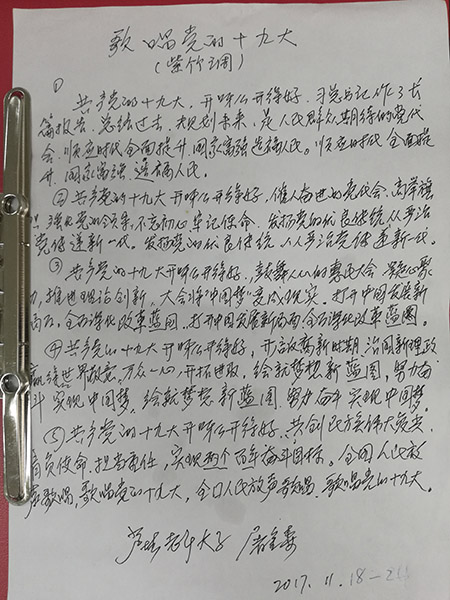 歌唱党的十九大
(紫竹调)
①
共产党的十九大,开呀么开得好,习总书记作了长
篇报告,总结过去,规划未来,是人民群众期待的党代
会,顺应时代全面提升国家富强造福人民。顺应时代全面提
升国家富强造福人民。
②共产党的十九大开呀么开得好,催人奋进的党代会,高举旗
党的领导,不忘初心牢记使命,发扬党的优良传统从严治
党传递新一代。发扬党的优良传统从严治党传递新一代。
③共产党的十九大开呀么开得好,鼓舞人心的党代会凝心聚
力,推进理论创新,大会将“中国梦”变成现实,打开中国发展新
局面,全面深化改革蓝图,打开中国发展新局面全面深化改革蓝图。
④共产党的十九大开呀么开得好,开启崭新时期治国新理政
赢得世界敬意,万众一心,开拓进取,绘就梦想新蓝图,努力奋
斗实现中国梦,绘就梦想新蓝图努力奋斗实现中国梦。
⑤共产党的十九大开呀么开得好,共创民族伟大复兴
肩负使命,担当责任,实现两个百年奋斗目标。全国人民放
声歌唱,歌唱党的十九大,全国人民放声歌唱,歌唱党的十九大。
2017.11.18-24